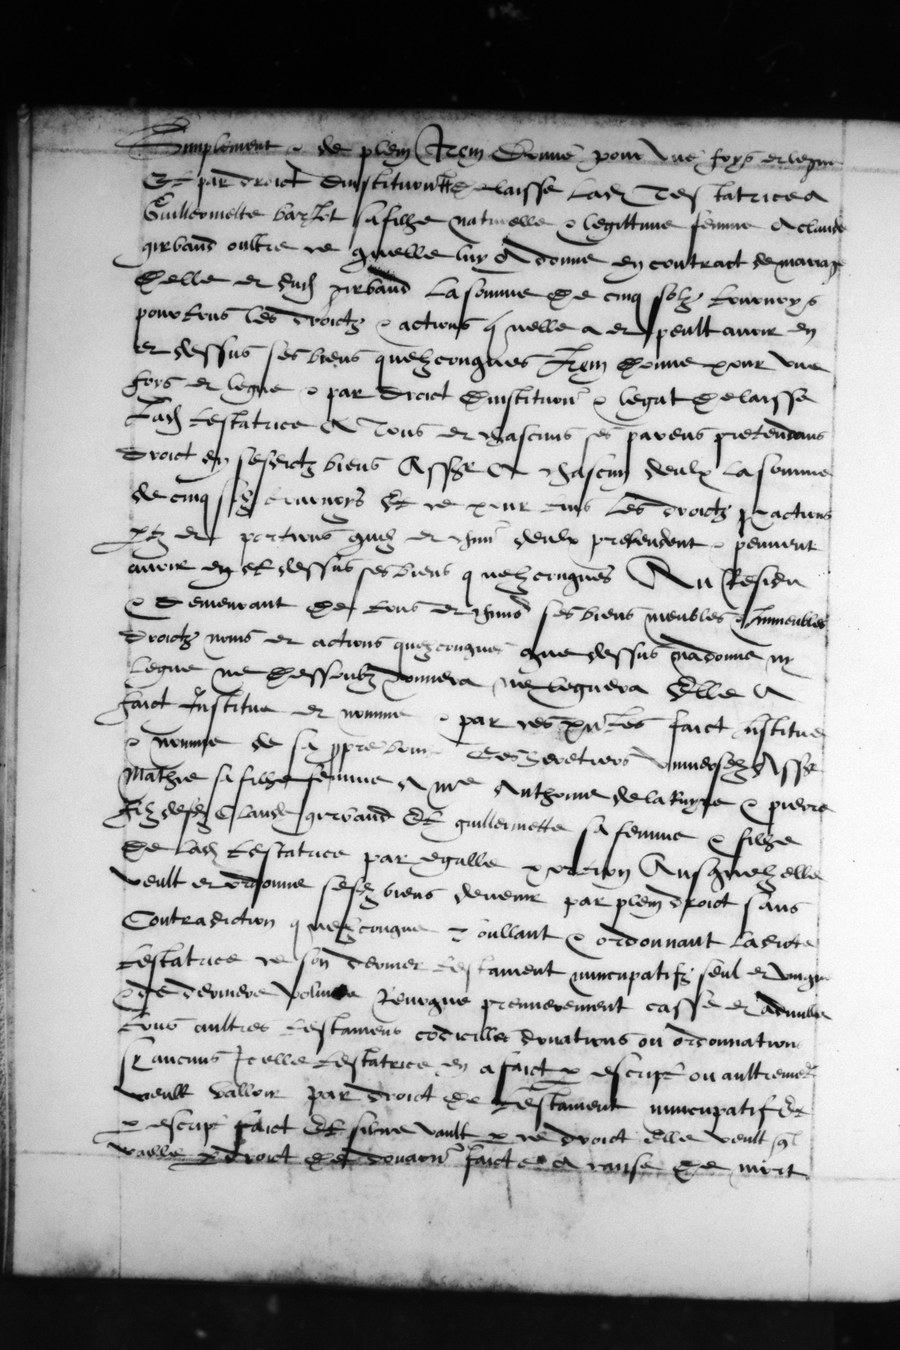 Simplement & de plein Item donne pour une foys et legue
Et par droict dinstitution delaisse lad testatrice a
Guillermette barlet sa filhe naturelle & legittime femme a claude
girbaud oultre ce quelle luy a donne en contract de mariage
delle et dud girbaud la somme de cinq solz tournoys
pour tous les droictz & actions quelle a et peult avoir en
et dessus ses biens quelzconques Item donne pour une
foys et legue & par droict dinstitution & legat delaisse
Lad testatrice a tous et chascuns ses parens pretendans
droict en sesdictz biens Assr a chascun deulx la somme
de cinq solz tournoys Et ce pour tous les droictz actions
et portions quilz et deulx pretendent & peuvent
avoir en et dessus ses biens quelzconques Au Residu
& demeurant de tous et ses biens meubles & Immeubles
droictz noms et actions quelzconques que dessus na donne ny
legue ne dessoubz donnera ne leguera Elle a
faict Institue et nomme & par ces faict institue
& nomme de sa propre bouche ses heretiers universelz Assr
Mathie sa filhe femme a me Anthoine de la & pierre
filz de feu Claude girbaud Et guillermette sa femme & filhe
de lad testatrice par egalle portion Ausquelz elle
veult et ordonne sesd biens devenir par plein droict sans
Contradiction quelzconque Voullant & ordonnant ladicte
testatrice ce son dernier testament nuncupatif seul et unique
& de derniere volunte Revoque premierement casse et adnulle
tous aultres testamens codicilles donations ou ordonnation
Sy aucuns Icelle testatrice en a faict p escript ou aultrement
veult valloir par droict de testament nuncupatif Et
p escript faict Et sinon vault p ce droict elle veult
vaille p droict de donation faicte a cause de mort